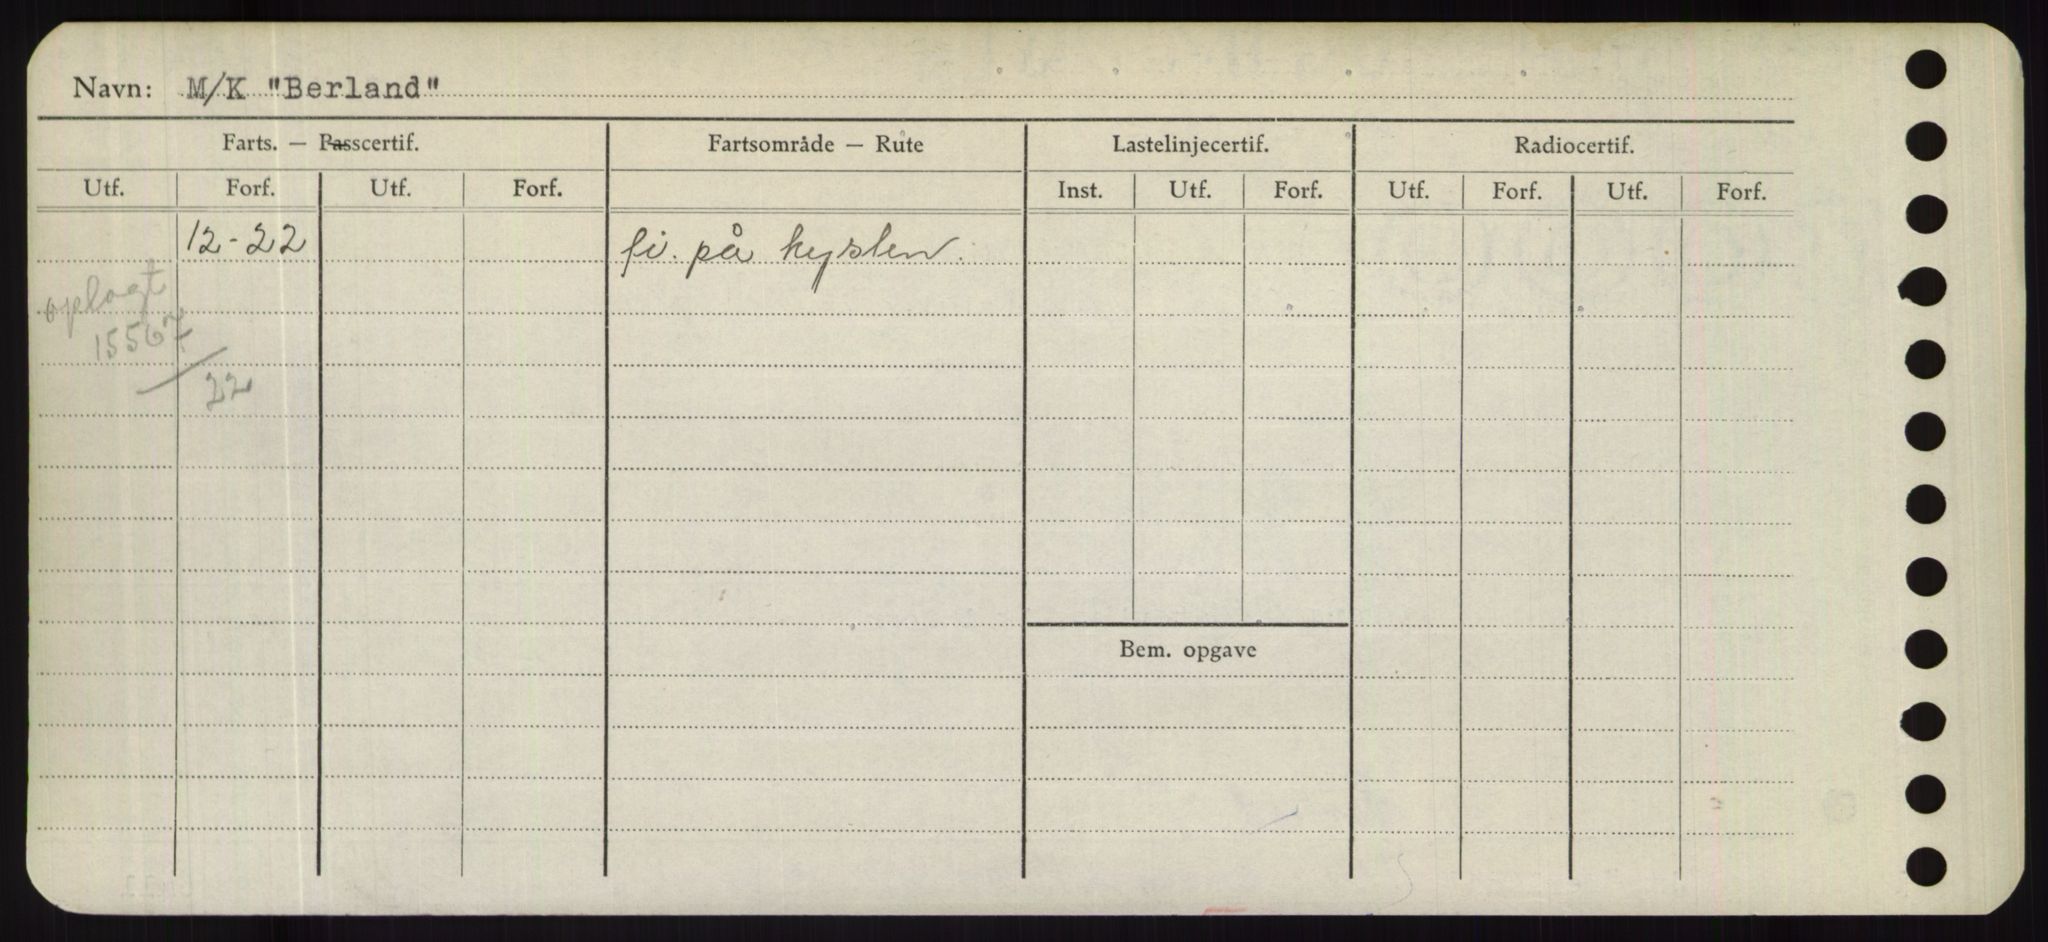 Navn: M/K "Berland"
Farts. — Passcertif. Fartsområde — Rute Lastelinjecertif. Radiocertif.
Utf. Forf. Utf. Forf. Inst. Utf. Forf. Utf. Forf. Utf. Forf.
12-22 fi. på kysten.
oplagt
15567
/22
Bem. opgave